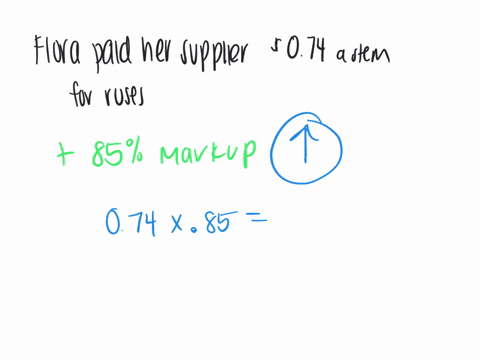 Flora paid her supplier $0.74 a stem
for ruses
+ 85% markup ↑
0.74 x .85 =